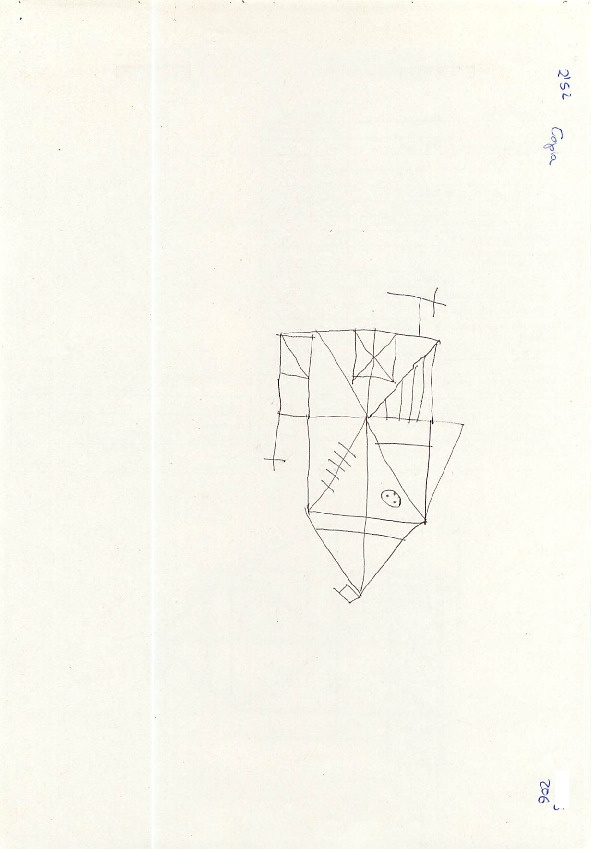 2'52 Copia
206